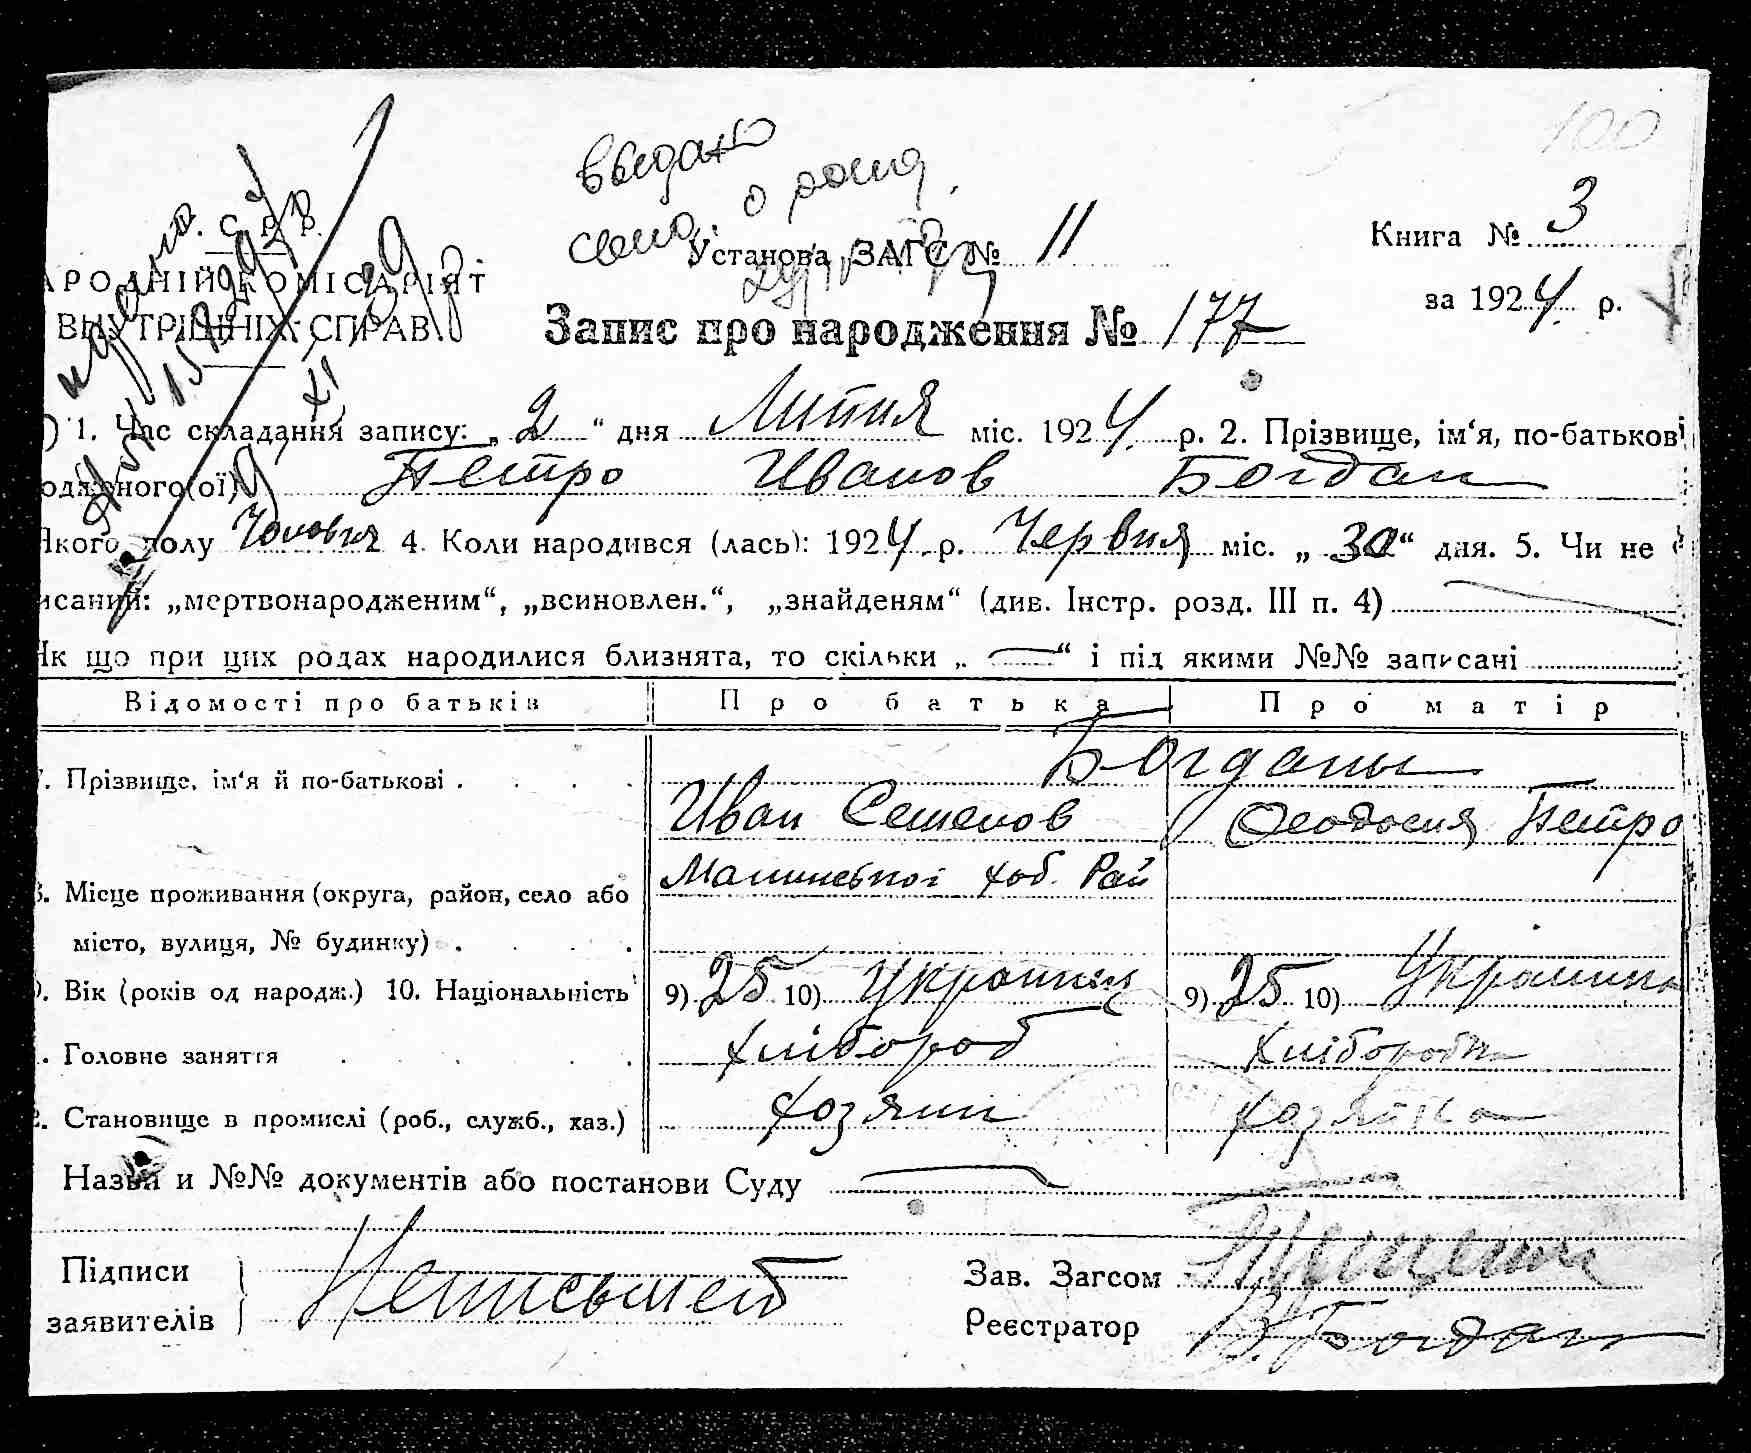 100
выдано
о рожд.
С. Р. Р.
Установа ЗАГС № 11
Книга № 3
АРОДНІЙ КОМІСАРІЯТ
за 1924 р.
ВНУТРІШНІХ СПРАВ.
Запис про народження № 177
) 1. Час складання запису: „ 2 “ дня Липня міс. 1924. р. 2. Прізвище, ім‘я, по-батькові
одженого(ої) Петро Иванов Богдан
Якого полу Чоловіч 4. Коли народився (лась): 1924. р. Червня міс. „ 30 “ дня. 5. Чи не є
исаний: „мертвонародженим“, „всиновлен.“, „знайденям“ (див. Інстр. розд. III п. 4)
Як що при цих родах народилися близнята, то скільки „ — “ і під якими №№ записані
Відомості про батьків Про батька Про матір
Богданы
7. Прізвище, ім‘я й по-батькові .
Иван Семенов Феодосия Петро
8. Місце проживання (округа, район, село або Рай
місто, вулиця, № будинку) .
9. Вік (років од народж.) 10. Національність 9) 25 10) Украинец 9) 25 10) Украинка
. Головне заняття хлібороб хліборобка
2. Становище в промислі (роб., служб., хаз.) хозяин хозяйка
Назва и №№ документів або постанови Суду
Підписи
заявителів
Неписьмен
Зав. Загсом
Реєстратор В. Богдан